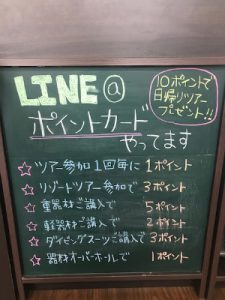 LINE@
10ポイントで
日帰りツアー
プレゼント!!
ポイントカード
やってます
☆ツアー参加1回毎に 1ポイント
☆リゾートツアー参加で 3ポイント
☆重器材ご購入で 5ポイント
☆軽器材ご購入で 2ポイント
☆ダイビングスーツご購入で 3ポイント
☆器材オーバーホールで 1ポイント